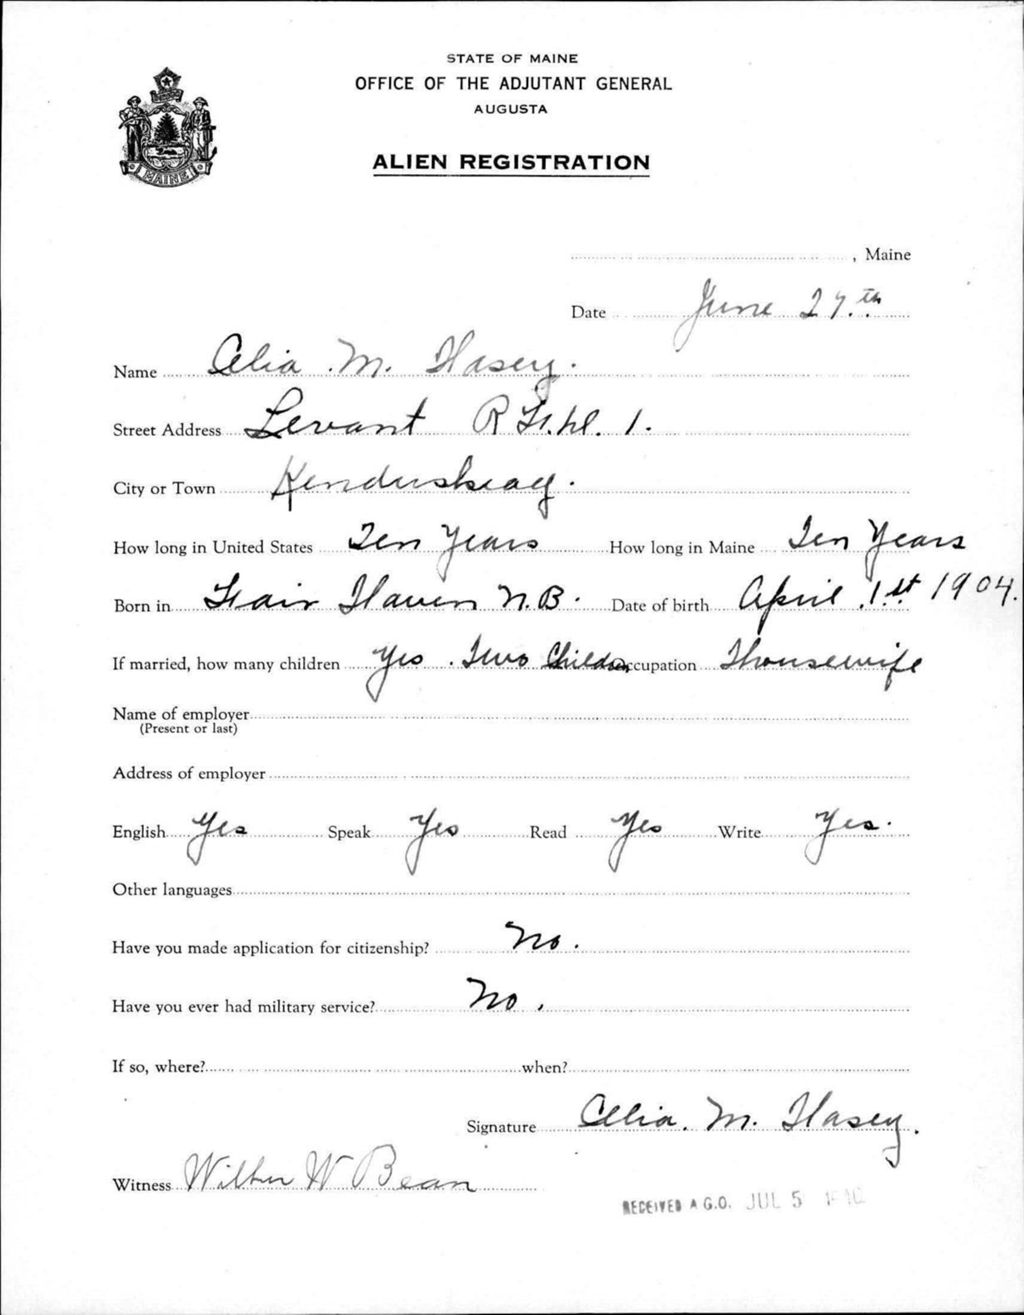 STATE OF MAINE
OFFICE OF THE ADJUTANT GENERAL
AUGUSTA
ALIEN REGISTRATION
MAINE
, Maine
Date June 27.th
Name Celia . M. Hasey.
Street Address Levant R. 1.
City or Town Kenduskeag.
How long in United States Ten Years How long in Maine Ten Years
Born in Fair Haven N.B. Date of birth April 1.st 1904.
If married, how many children Yes . Two Children Occupation Housewife
Name of employer
(Present or last)
Address of employer
English Yes Speak Yes Read Yes Write Yes.
Other languages
Have you made application for citizenship? No.
Have you ever had military service? No.
If so, where? when?
Signature Celia. M. Hasey.
Witness Wilbur W Bean
RECEIVED A.G.O. JUL 5 1940